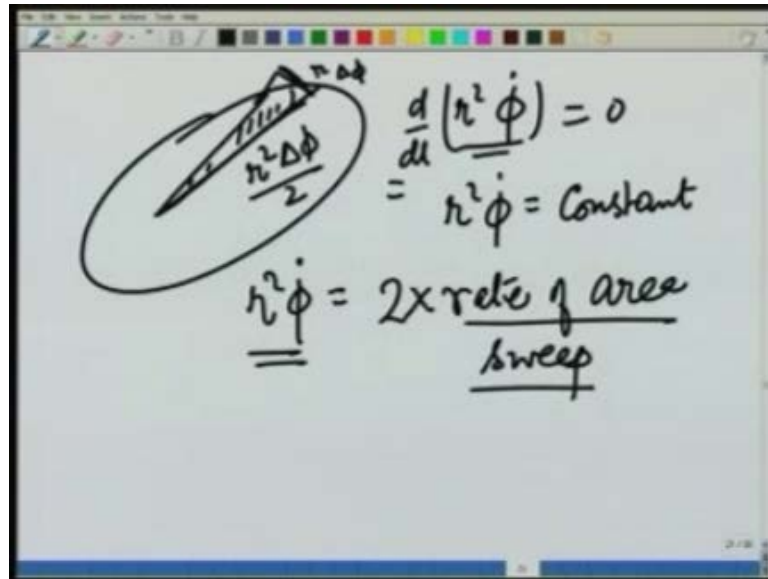 r Δϕ
r²Δϕ/2
d/dt (r² ϕ̇) = 0
= r² ϕ̇ = Constant
r² ϕ̇ = 2× rate of area
sweep